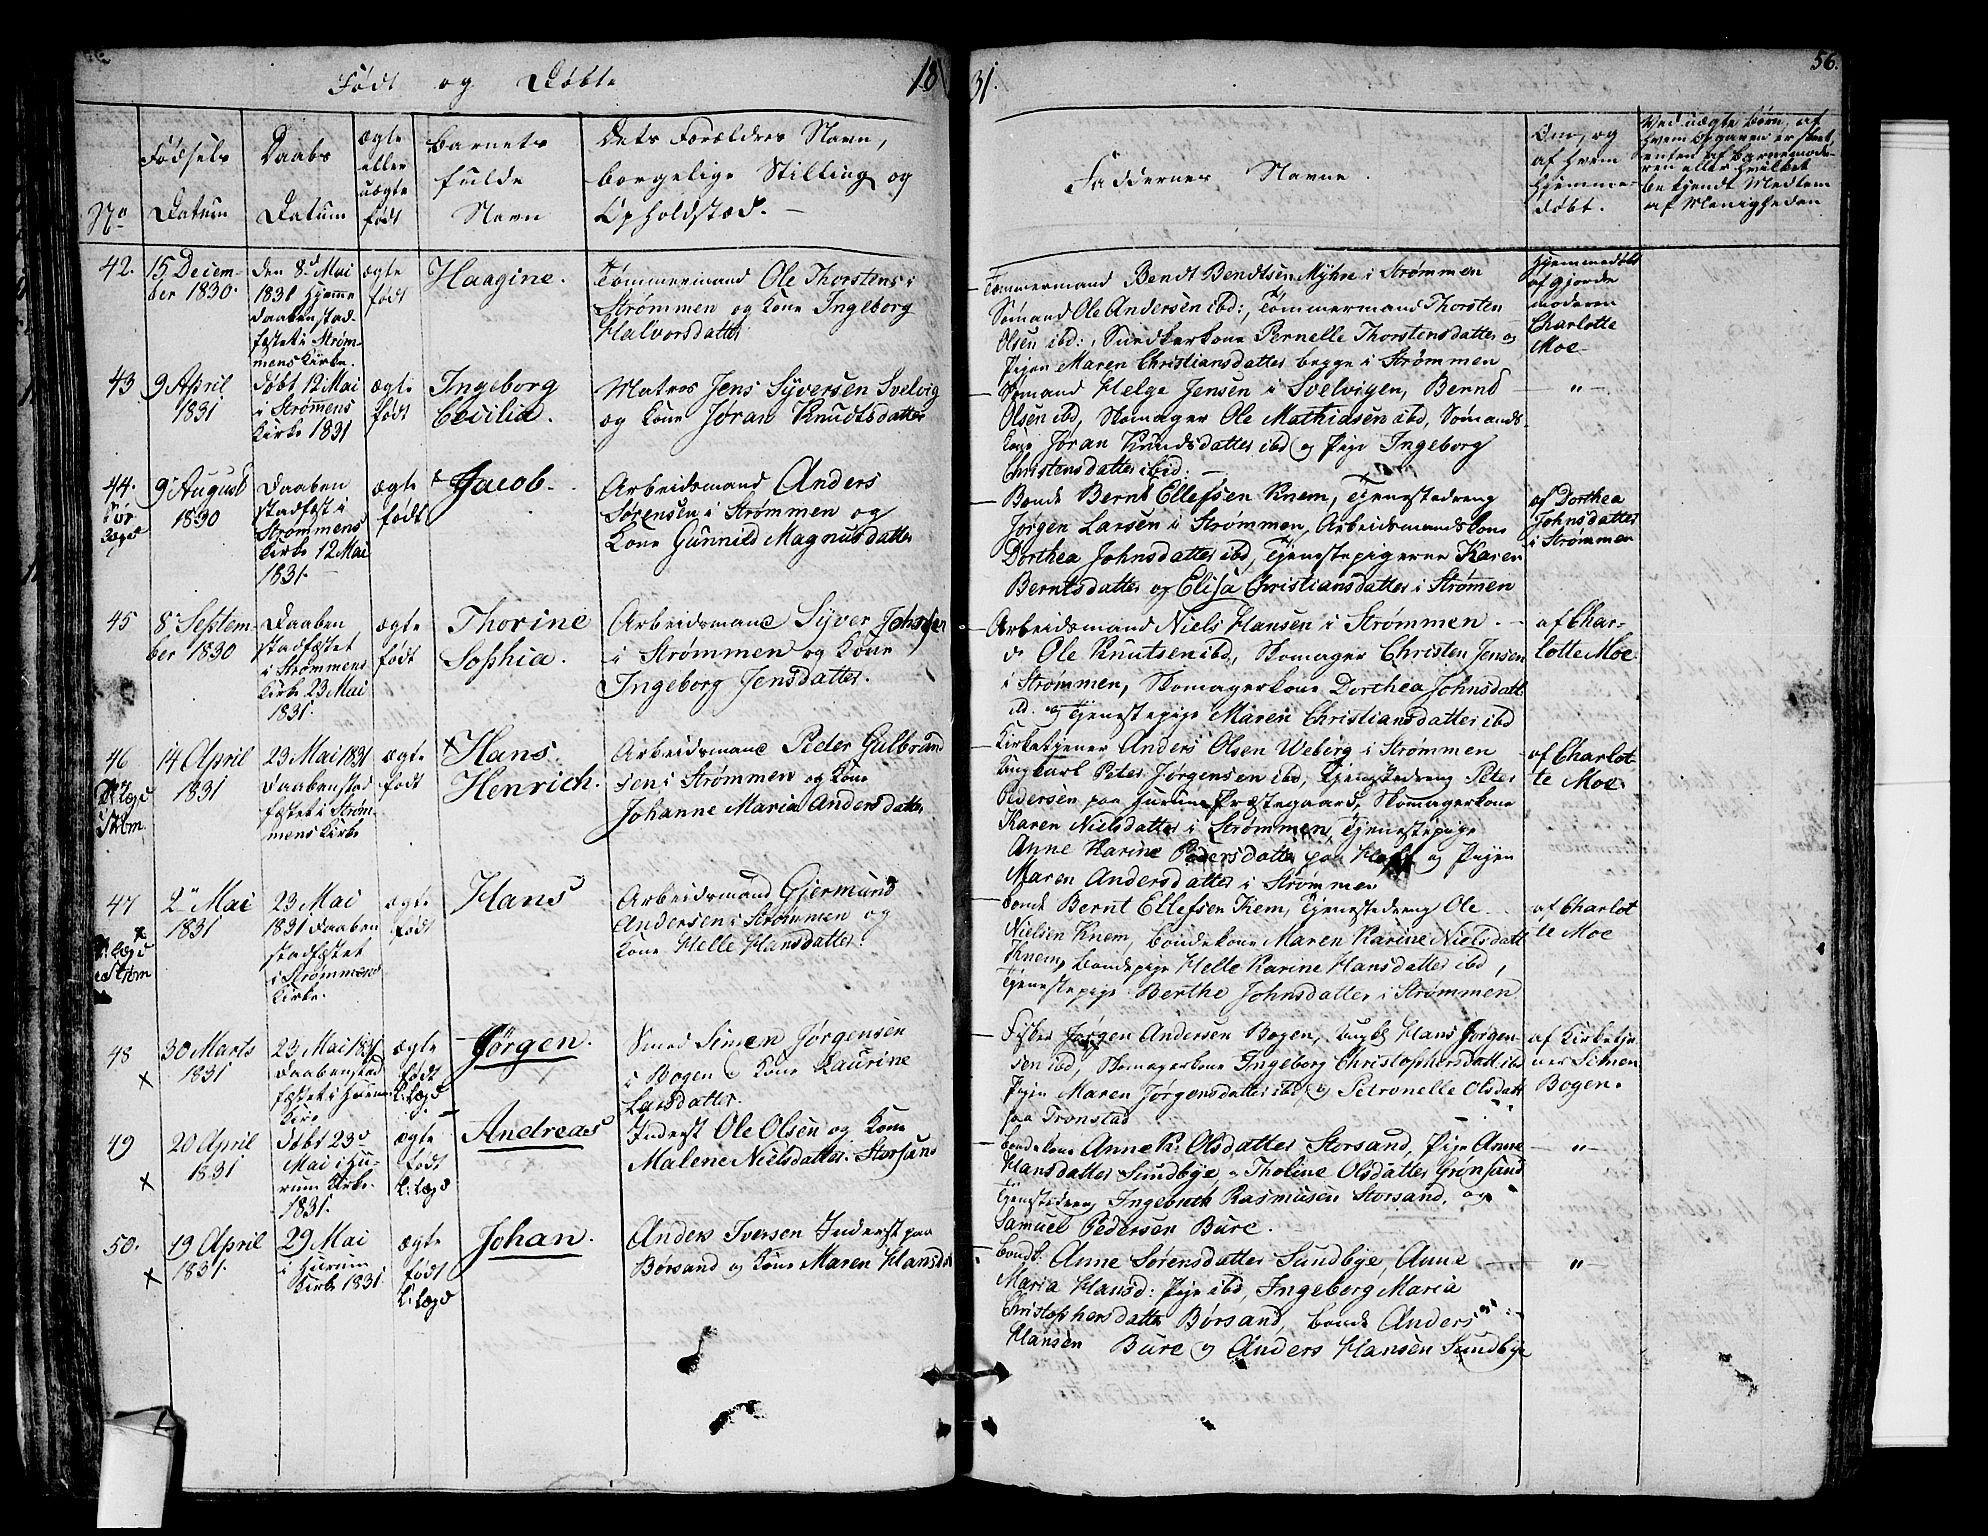 Født og Døbte 1831. 56.
No
Fødsels Datum
Daabs Datum
ægte eller uægte født
Barnets fulde Navn
Dets Forældres Navn, borgelige Stilling og Opholdstæd. —
Faddernes Navne.
Om, og af hvem hjemmedøbt.
Ved uægte Børn, af hvem Opgaven er skeet, enten af Barnemoderen eller hvilket bekjendt Medlem af Menigheden
42. 15 Decem-
ber 1830.
den 8d Mai
1831 hjemme
daaben stad-
fæstet i Strøm-
mens Kirke.
ægte
født
Haagine.
Tømmermand Ole Thorstens i
Strømmen og Kone Ingeborg
Halvorsdatter
— Tømmermand Bendt Bendtsen Myhre i Strømmen
Sømand Ole Andersen ibd:, Tømmermand Thorsten
Olsen ibd:, Pernelle Thorstensdatter og
Pigen Maren Christiansdatter begge i Strømmen
Hjemmedøbt
af gjorde
moderen
Charlotte
Moe.
43 9 April
1831
døbt 12 Mai
i Strømmens
Kirke 1831
ægte
født
Ingeborg
Cecilia.
Matros Jens Syversen Svelvig
og Kone Joran Knudtsdatter
— Sømand Helge Jensen i Svelvigen, Bernt
Olsen ibd, Skomager Ole Mathiasen ibd, Sømands-
kone Joran Knudsdatter ibd og Pige Ingeborg
Christensdatter ibid. —
— " —
44. 9 August
1830
Daaben
stadfæst i
Strømmens
Kirke 12 Mai
1831.
ægte
født
Jacob.
Arbeidsmand Anders
Sørensen i Strømmen og
Kone Gunnild Magnusdatter
— Bonde Bernt Ellefsen Knem, Tjenestedreng
Jørgen Larsen i Strømmen, Arbeidsmandskone
Dorthea Johnsdatter ibd, Tjenestepigerne Karen
Berntsdatter og Elisa Christiansdatter i Strømen
af Dorthea
Johnsdatter
i Strømmen
45 8 Septem-
ber 1830
Daaben
stadfæstet
i Strømmens
Kirke 23 Mai
1831.
ægte
født
Thorine
Sophia.
Arbeidsmand Syver Johnsen
i Strømmen og Kone
Ingeborg Jensdatter.
— Arbeidsmand Niels Hansen i Strømmen.
Ole Knutsen ibd, Skomager Christen Jensen
i Strømmen, Skomagerkone Dorthea Johnsdatt
ibd. og Tjenestepige Maren Christiansdatter ibd
af Char-
lotte Moe.
46 14 April
1831
23 Mai 1831
Daaben stad
fæstet i Strøm-
mens Kirke
ægte
født
Hans
Henrich.
Arbeidsmand Peder Gulbrand
sen i Strømmen og Kone
Johanne Maria Andersdatter
— Kirketjener Anders Olsen Weberg i Strømmen
Ungkarl Peter Jørgensen ibd, Tjenestedreng Peter
Pedersen paa Hurum Præstegaard, Skomagerkone
Karen Nielsdatter i Strømmen, Tjenestepige
Anne Karine Pedersdatter paa og Pigen
Maren Andersdatter i Strømmen
af Charlot
te Moe.
47 2 Mai
1831
23 Mai
1831 Daaben
stadfæstet
i Strømmens
Kirke.
ægte
født
Hans
Arbeidsmand Gjermund
Andersen i Strømmen og
Kone Helle Hansdatter.
— Bonde Bernt Ellefsen Kem, Tjenestedreng Ole
Nielsen Knem, Bondekone Maren Karine Nielsdatt
Knem, Bondepige Helle Karine Hansdatter ibd,
Tjenestepige Berthe Johnsdatter i Strømmen
af Charlot
te Moe
48 30 Marts
1831
23 Mai 1831
Daaben stad
fæstet i Hurum
Kirke
ægte
født
K: Lægd
Jørgen.
Smed Simen Jørgensen
i Bogen & Kone Laurine
Larsdatter.
— Fisker Jørgen Andersen Bogen, Ungk Hans Jørgen-
sen ibd, Skomagerkone Ingeborg Christophersdatt. ibd
Pigen Maren Jørgensdatter ibd, og Petronelle Olsdatt
paa Tronstad
af Kirketje
ner Simen
Bogen.
49 20 April
1831
døbt 23d
Mai i Hu-
rum Kirke.
1831.
ægte
født
K: Lægd
Andreas
Inderst Ole Olsen og Kone
Malene Nielsdatter. Storsand
— Bondekone Anne K: Olsdatter Storsand, Pige Anne
Hansdatter Sundbye, Tholine Olsdatter Grønsand
Tjenestedreng Ingebreth Rasmusen Storsand, og
Samuel Pedersen Bure.
— " —
50. 19 April
1831.
29 Mai
i Hurum
Kirke 1831
ægte
født
K: Lægd
Johan.
Anders Iversen Inderst paa
Børsand og Kone Maren Hansdr
— Bondk: Anne Sørensdatter Sundbye, Anne
Maria Hansd: Pige ibd, Ingeborg Maria
Christophersdatter Børsand, Bonde Anders
Hansen Bure og Anders Hansen Sundbye
— " —